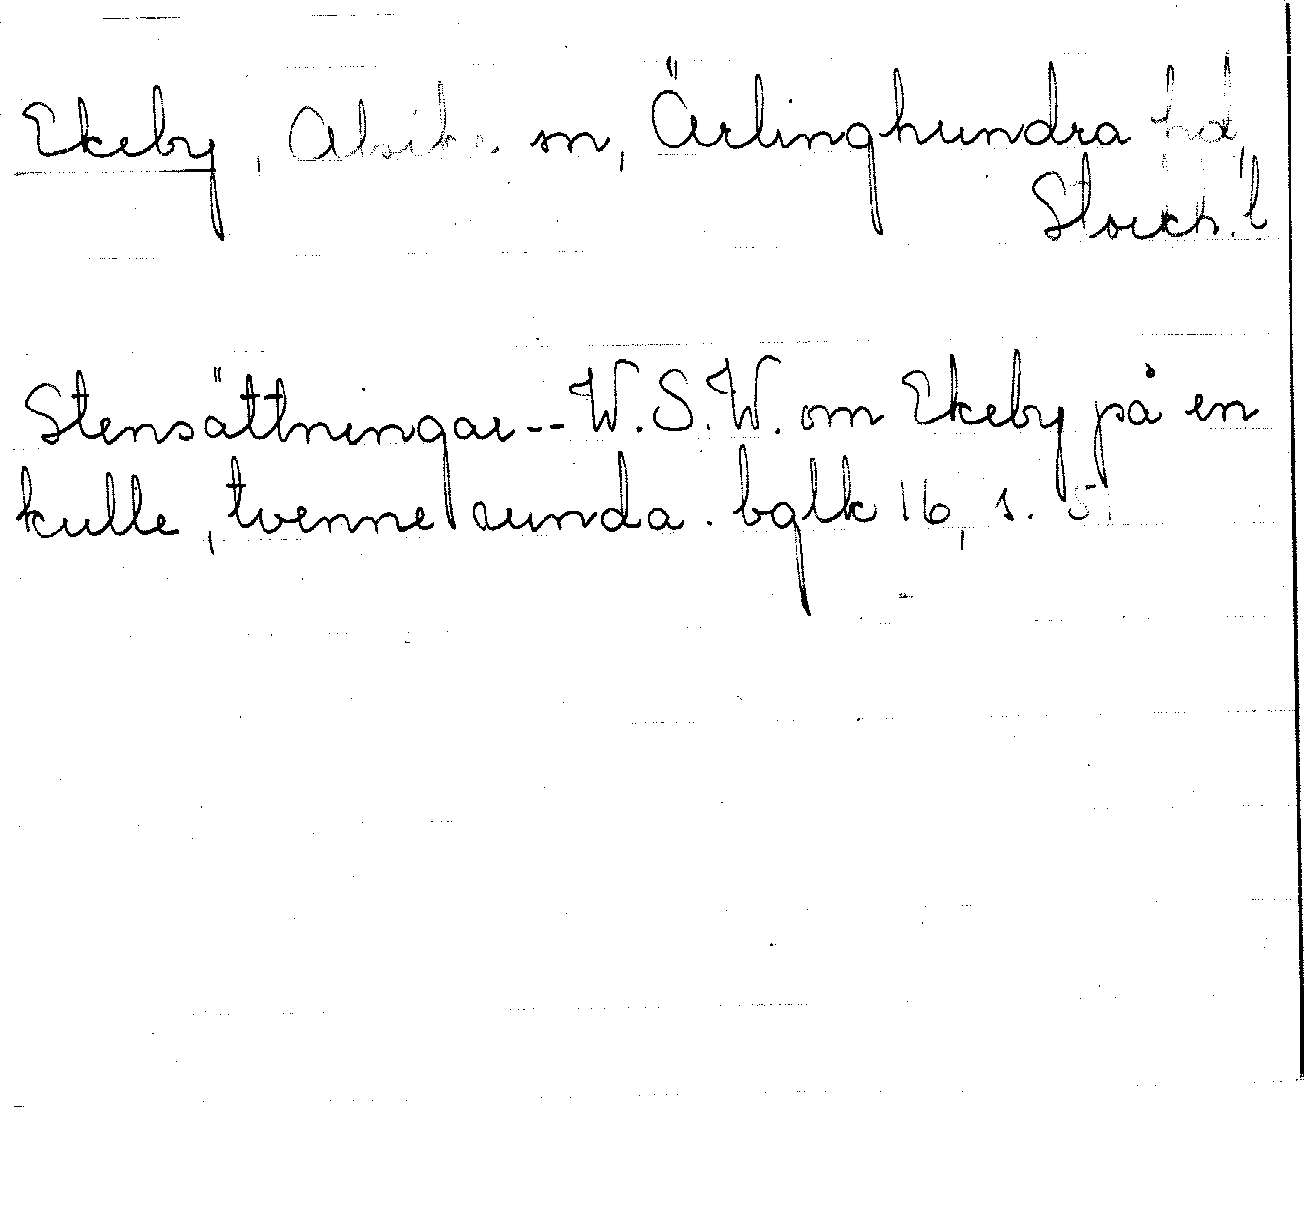 Ekeby, Alsike sn, Ärlinghundra hd,
Stockh. l
Stensättningar -- W.S.W. om Ekeby på en
kulle, tvenne runda. bglk 16, s. 5.